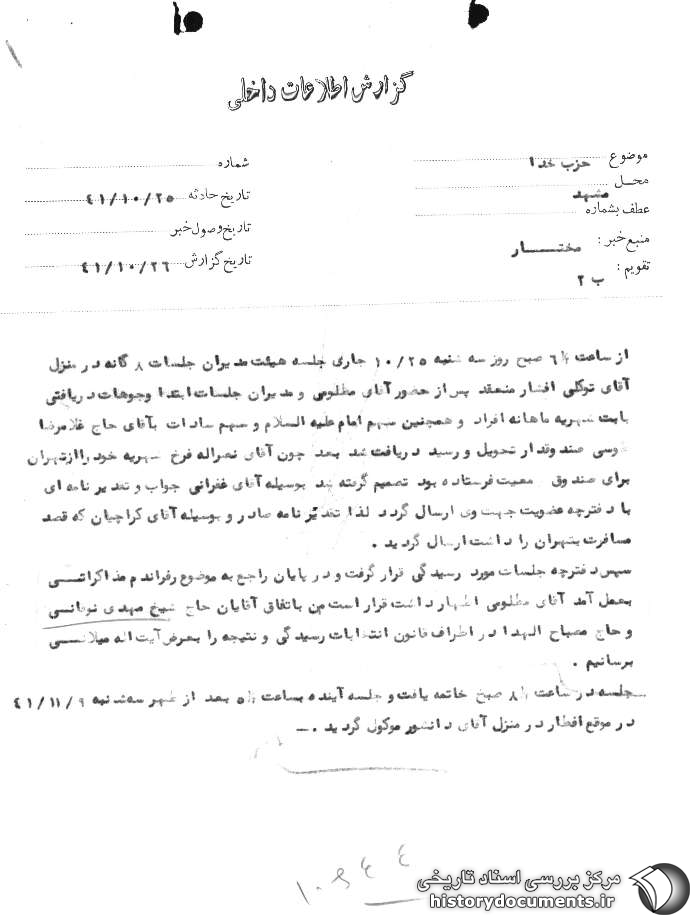 گزارش اطلاعات داخلی
موضوع حزب خدا
محل مشهد
عطف بشماره
منبع خبر : مختار
تقویم : ب ۲
شماره
تاریخ حادثه ۴۱/۱۰/۲۵
تاریخ وصول خبر
تاریخ گزارش ۴۱/۱۰/۲۶
از ساعت ۶½ صبح روز سه شنبه ۱۰/۲۵ جاری جلسه هیئت مدیران جلسات ۸ گانه در منزل
آقای توکلی افشار منعقد پس از حضور آقای مظلومی و مدیران جلسات ابتدا وجوهات دریافتی
بابت شهریه ماهانه افراد و همچنین سهم امام علیه السلام و سهم سادات بآقای حاج غلامرضا
صندوقدار تحویل و رسید دریافت شد بعد چون آقای نصراله فرخ شهریه خود را از تهران
برای صندوق معیت فرستاده بود تصمیم گرفته شد بوسیله آقای غفرانی جواب و تقدیر نامه ای
با دفترچه عضویت جهت وی ارسال گردد لذا تقدیر نامه صادر و بوسیله آقای کراچیان که قصد
مسافرت بتهران را داشت ارسال گردید .
سپس دفترچه جلسات مورد رسیدگی قرار گرفت و در پایان راجع به موضوع رفراندم مذاکراتی
بعمل آمد آقای مظلومی اظهار داشت قرار است من باتفاق آقایان حاج شیخ مهدی نوغانی
و حاج مصباح الهدا در اطراف قانون انتخابات رسیدگی و نتیجه را بعرض آیت اله میلانی
برسانیم .
جلسه در ساعت ۸½ صبح خاتمه یافت و جلسه آینده بساعت ۵½ بعد از ظهر سه شنبه ۴۱/۱۱/۹
در موقع افطار در منزل آقای دانشور موکول گردید .ـ
مرکز بررسی اسناد تاریخی
historydocuments.ir